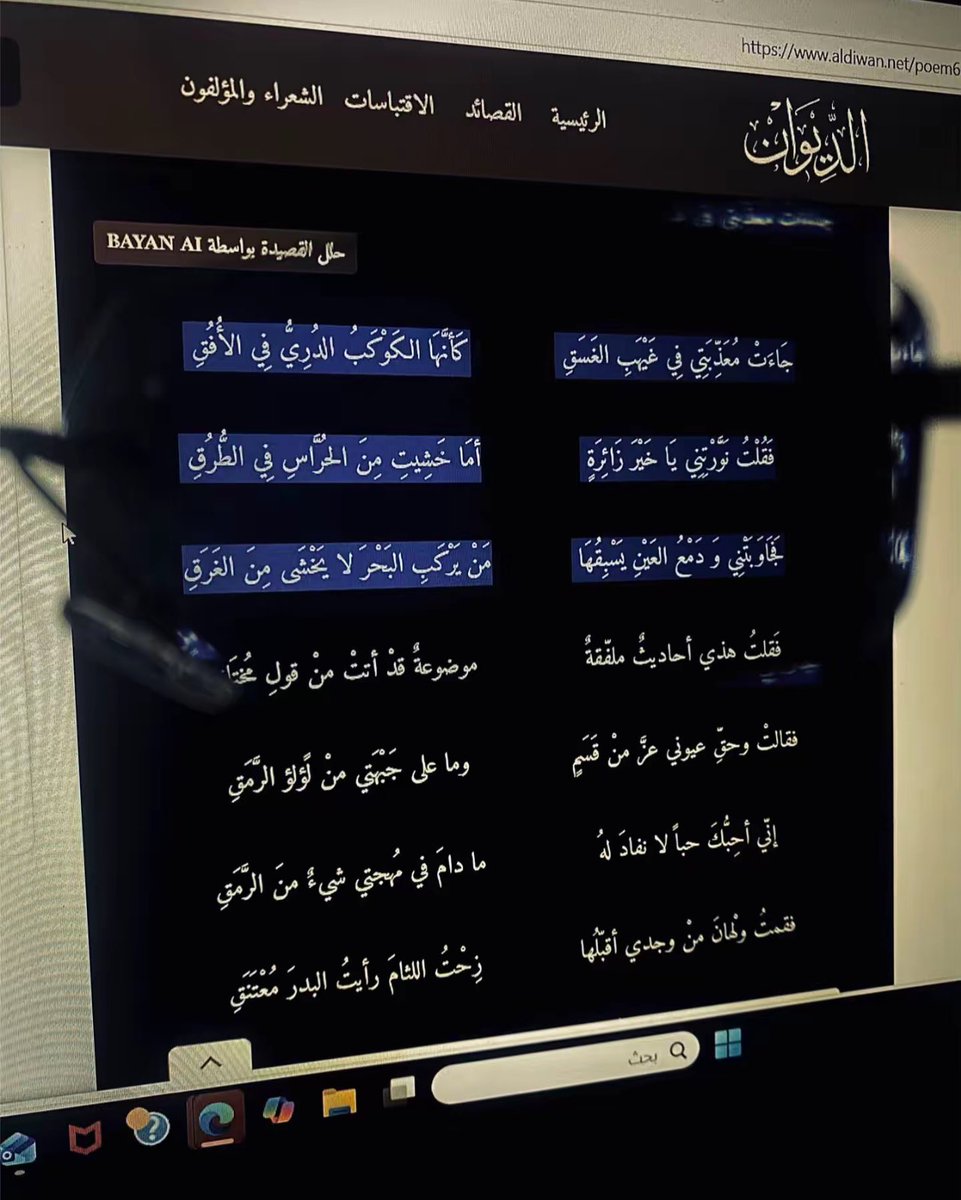 https://www.aldiwan.net/poem6
الدِّيوَان
الرئيسية القصائد الاقتباسات الشعراء والمؤلفون
حلل القصيدة بواسطة BAYAN AI
جَاءَتْ مُعَذِّبَتِي فِي غَيْهَبِ الغَسَقِ
كَأنَّهَا الكَوْكَبُ الدُرِيُّ فِي الأُفُقِ
فَقُلْتُ نَوَّرْتِنِي يَا خَيْرَ زَائِرَةٍ
أمَا خَشِيتِ مِنَ الحُرَّاسِ فِي الطُّرُقِ
فَجَاوَبَتْنِي وَ دَمْعُ العَيْنِ يَسْبِقُهَا
مَنْ يَرْكَبِ البَحْرَ لا يَخْشَى مِنَ الغَرَقِ
فَقلتُ هذي أحاديثٌ ملفّقةٌ
موضوعةٌ قدْ أتتْ منْ قولِ
فقالتْ وحقِّ عيوني عزَّ منْ قَسَمٍ
وما على جَبْهَتي منْ لُؤلؤ الرَّمَقِ
إنّي أحِبُّكَ حباً لا نفادَ لهُ
ما دامَ في مُهجتي شيءٌ منَ الرَّمَقِ
فقمتُ ولْهانَ منْ وجدي أقبّلُها
زِحْتُ اللثامَ رأيتُ البدرَ مُعْتَنَقِ
بحث